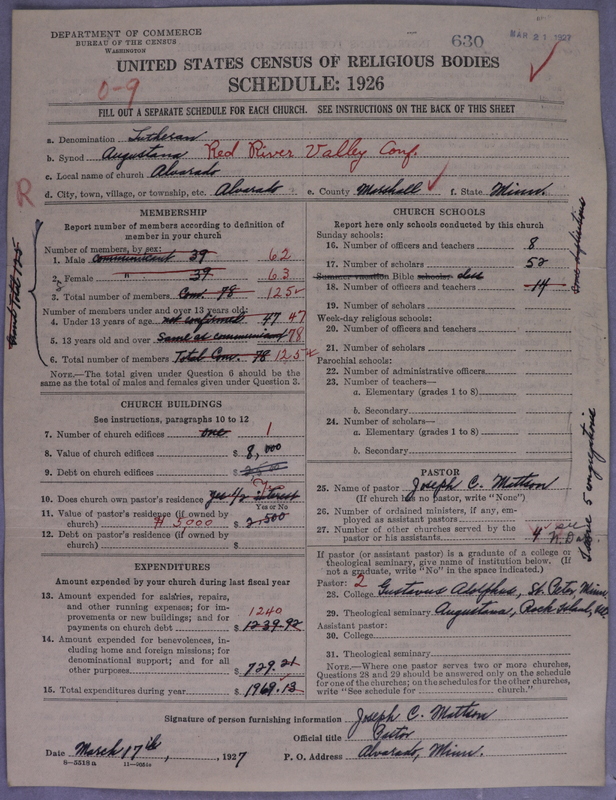 DEPARTMENT OF COMMERCE
BUREAU OF THE CENSUS
WASHINGTON
630
MAR 21 1927
UNITED STATES CENSUS OF RELIGIOUS BODIES
SCHEDULE: 1926
0-9
FILL OUT A SEPARATE SCHEDULE FOR EACH CHURCH. SEE INSTRUCTIONS ON THE BACK OF THIS SHEET
a. Denomination Lutheran
b. Synod Augustana Red River Valley Conf.
c. Local name of church Alvarado
R
d. City, town, village, or township, etc. Alvarado e. County Marshall f. State Minn.
MEMBERSHIP
Report number of members according to definition of
member in your church
Number of members, by sex:
1. Male communicant 39 62
2. Female " 39 63
3. Total number of members Com. 78 125
Number of members under and over 13 years old:
4. Under 13 years of age not confirmed 47 47
5. 13 years old and over Same as communicant 78
6. Total number of members Total Com. 78 125
NOTE.—The total given under Question 6 should be the
same as the total of males and females given under Question 3.
CHURCH BUILDINGS
See instructions, paragraphs 10 to 12
7. Number of church edifices one 1
8. Value of church edifices $ 8,000
9. Debt on church edifices $
10. Does church own pastor's residence yes 1/2 interest
Yes or No
11. Value of pastor's residence (if owned by
church) # 5,000 $ 2,500
12. Debt on pastor's residence (if owned by
church) $
EXPENDITURES
Amount expended by your church during last fiscal year
13. Amount expended for salaries, repairs,
and other running expenses; for im-
provements or new buildings; and for 1240
payments on church debt $ 1239.92
14. Amount expended for benevolences, in-
cluding home and foreign missions; for
denominational support; and for all
other purposes $ 729.21
15. Total expenditures during year $ 1969.13
CHURCH SCHOOLS
Report here only schools conducted by this church
Sunday schools:
16. Number of officers and teachers 8
17. Number of scholars 52
Summer vacation Bible schools: class
18. Number of officers and teachers 14
19. Number of scholars
Week-day religious schools:
20. Number of officers and teachers
21. Number of scholars
Parochial schools:
22. Number of administrative officers
23. Number of teachers—
a. Elementary (grades 1 to 8)
b. Secondary
24. Number of scholars—
a. Elementary (grades 1 to 8)
b. Secondary
PASTOR
25. Name of pastor Joseph C. Mattson
(If church has no pastor, write "None")
26. Number of ordained ministers, if any, em-
ployed as assistant pastors
27. Number of other churches served by the
pastor or his assistants 4
I serve 5 congregations
If pastor (or assistant pastor) is a graduate of a college or
theological seminary, give name of institution below. (If
not a graduate, write "No" in the space indicated.)
Pastor: 2
28. College Gustavus Adolphus, St. Peter, Minn.
29. Theological seminary Augustana, Rock Island, Ill.
Assistant pastor:
30. College
31. Theological seminary
NOTE.—Where one pastor serves two or more churches,
Questions 28 and 29 should be answered only on the schedule
for one of the churches; on the schedules for the other churches,
write "See schedule for church."
Signature of person furnishing information Joseph C. Mattson
Official title Pastor
Date March 17th, 1927 P. O. Address Alvarado, Minn.
8—5518 a